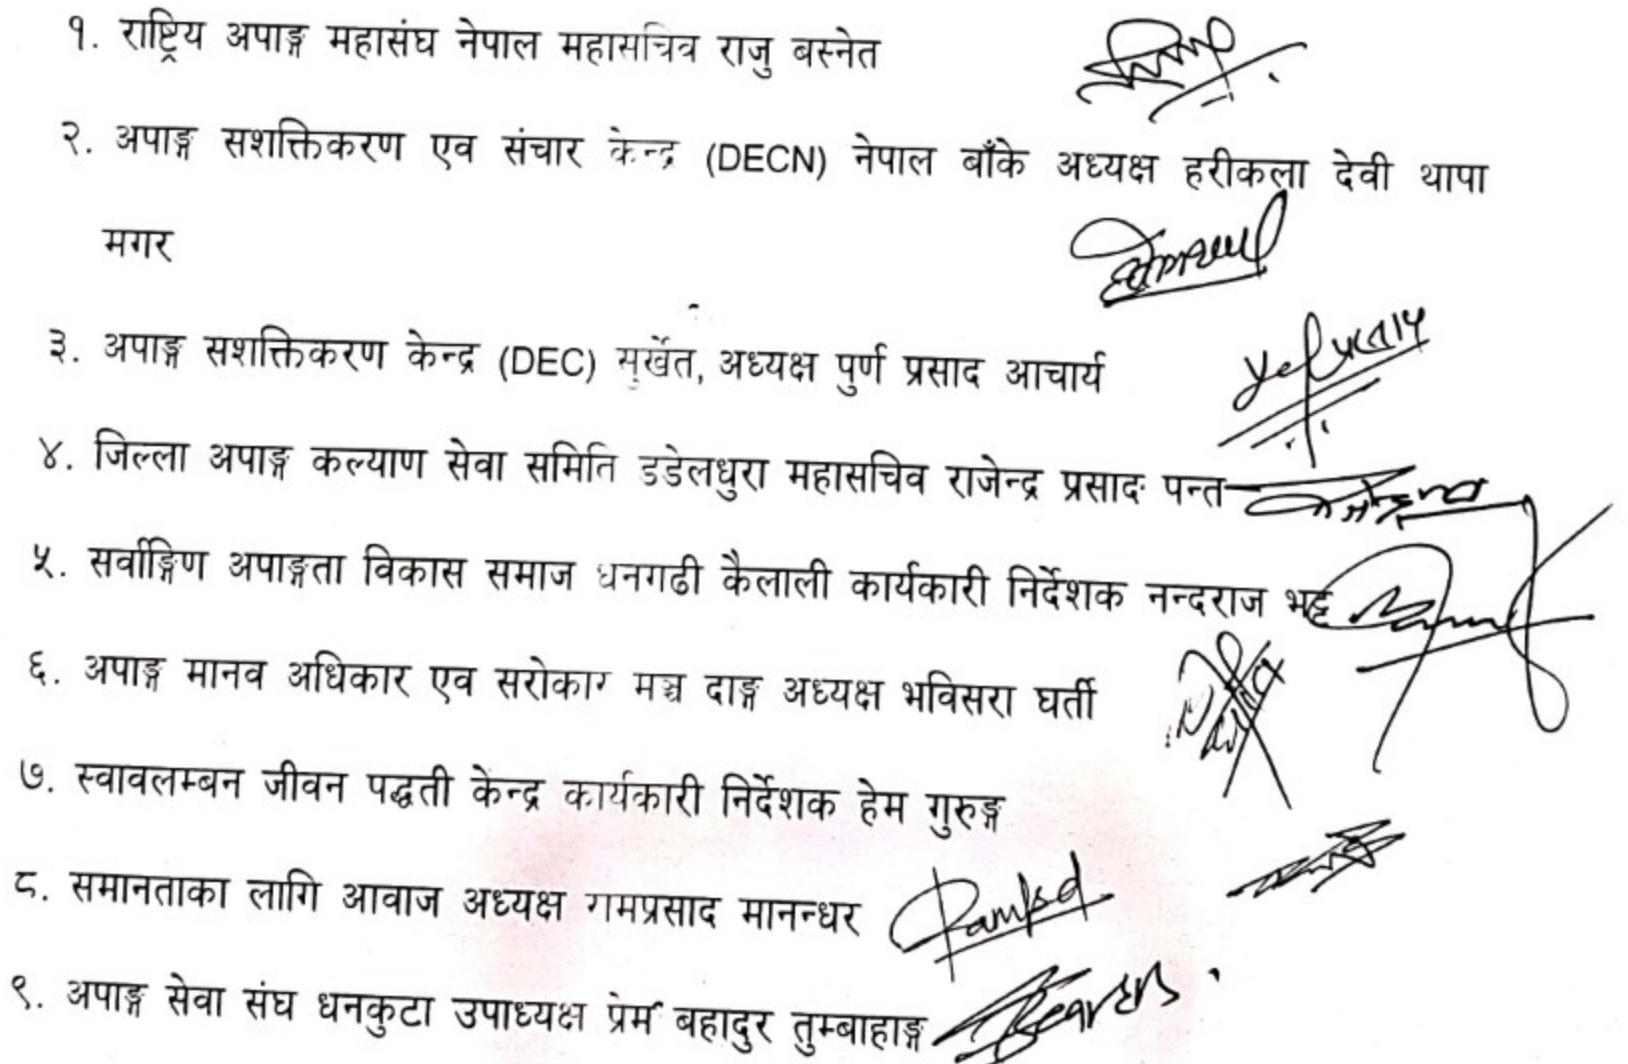 १. राष्ट्रिय अपाङ्ग महासंघ नेपाल महासचिव राजु बस्नेत
२. अपाङ्ग सशक्तिकरण एव संचार केन्द्र (DECN) नेपाल बाँके अध्यक्ष हरीकला देवी थापा
मगर
३. अपाङ्ग सशक्तिकरण केन्द्र (DEC) सुर्खेत, अध्यक्ष पुर्ण प्रसाद आचार्य
४. जिल्ला अपाङ्ग कल्याण सेवा समिति डडेलधुरा महासचिव राजेन्द्र प्रसाद पन्त
५. सर्वाङ्गिण अपाङ्गता विकास समाज धनगढी कैलाली कार्यकारी निर्देशक नन्दराज भट्ट
६. अपाङ्ग मानव अधिकार एव सरोकार मञ्च दाङ्ग अध्यक्ष भविसरा घर्ती
७. स्वावलम्बन जीवन पद्धती केन्द्र कार्यकारी निर्देशक हेम गुरुङ्ग
८. समानताका लागि आवाज अध्यक्ष रामप्रसाद मानन्धर
९. अपाङ्ग सेवा संघ धनकुटा उपाध्यक्ष प्रेम बहादुर तुम्बाहाङ्ग